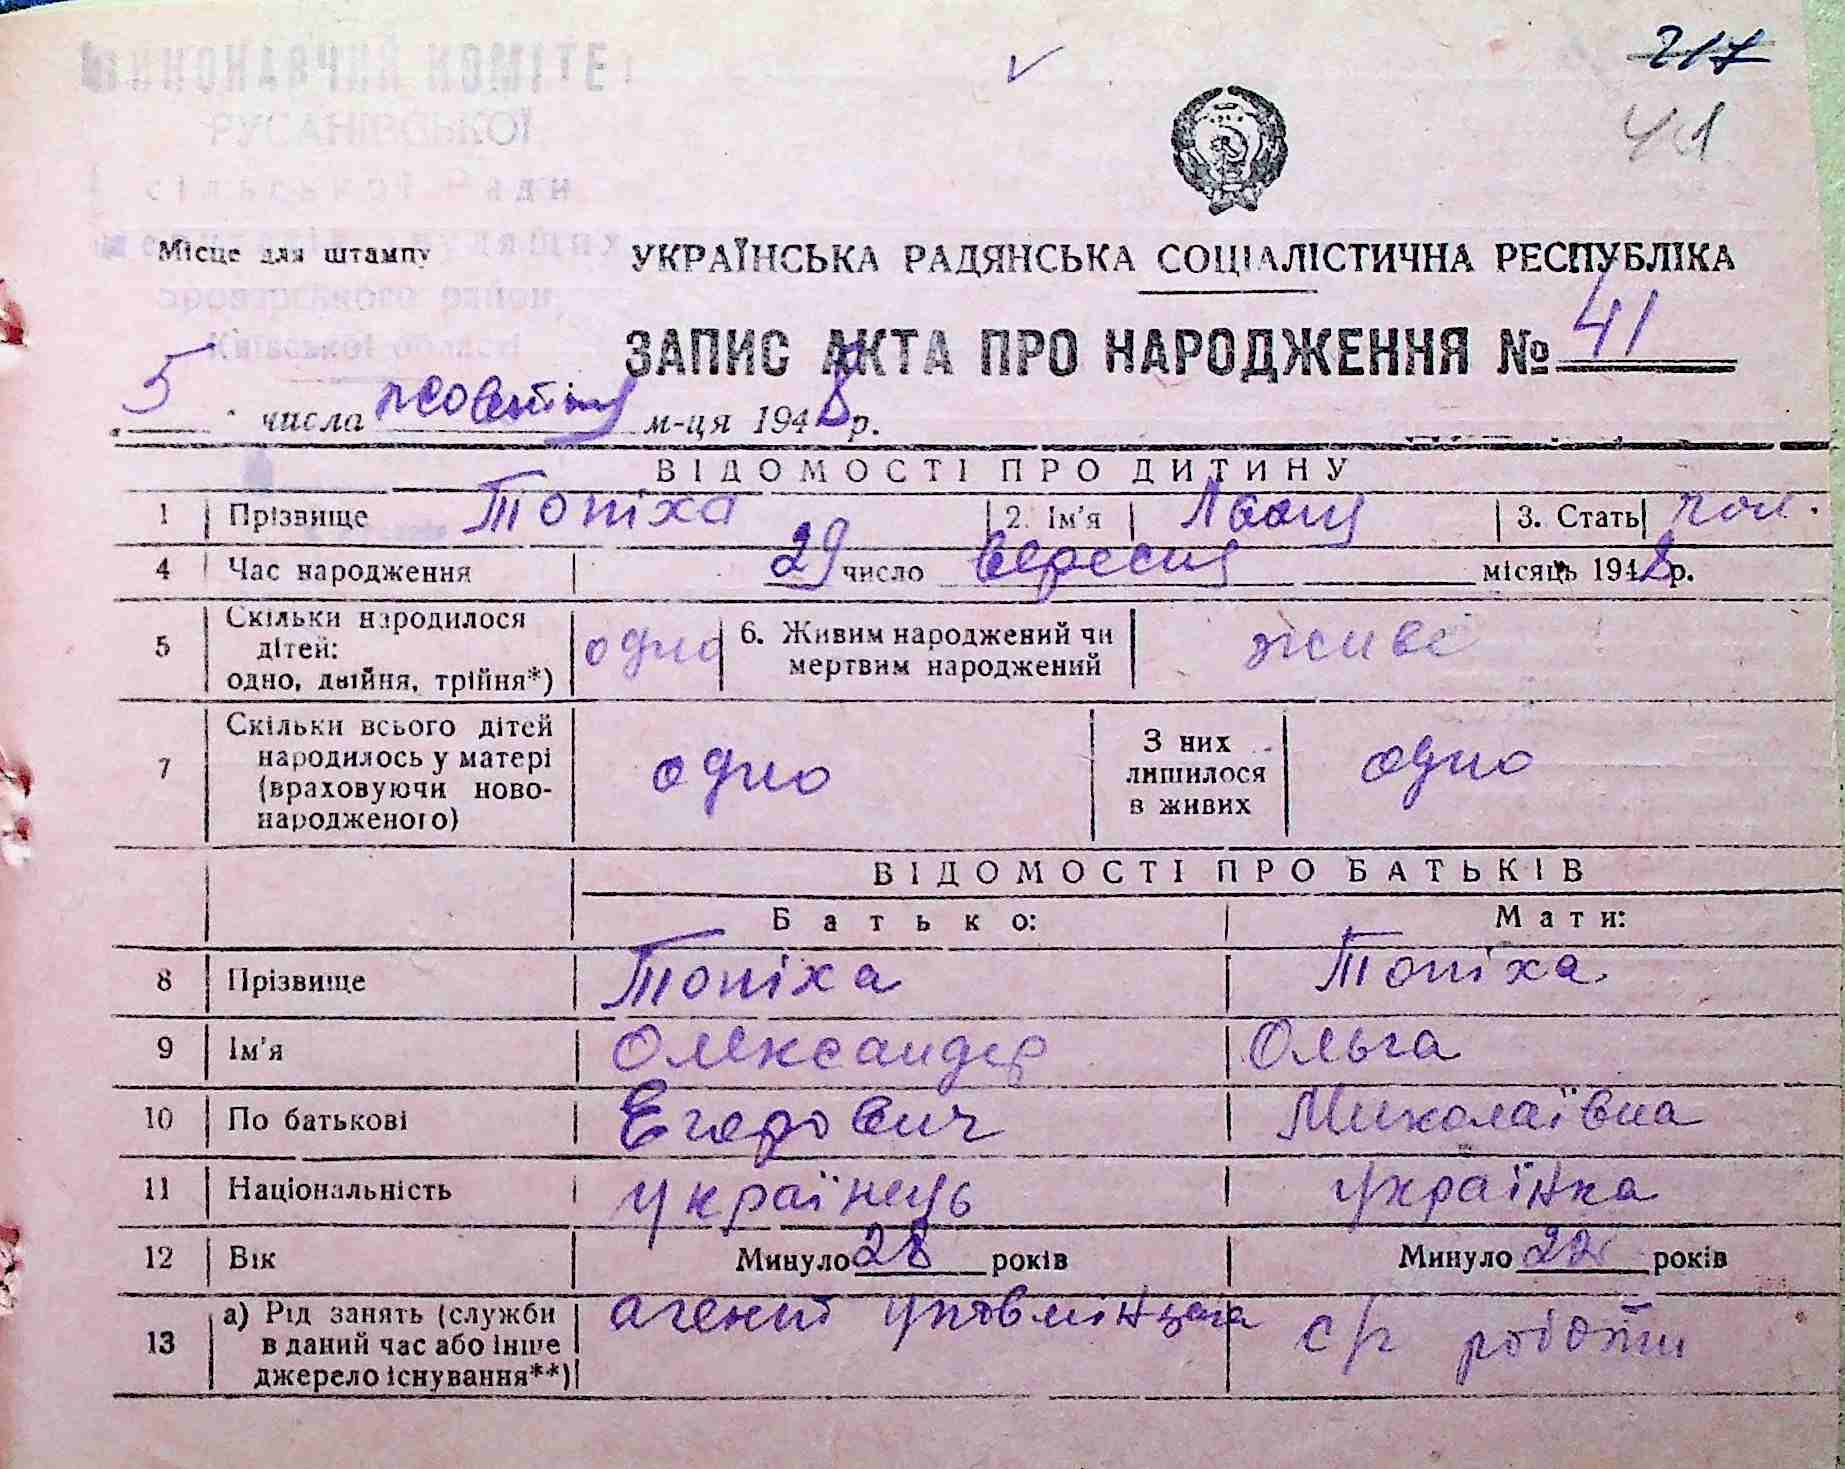 217
41
ВИКОНАВЧИЙ КОМІТЕТ
РУСАНІВСЬКОЇ
сільської Ради
депутатів трудящих
Броварського району
Київської області
Місце для штампу
УКРАЇНСЬКА РАДЯНСЬКА СОЦІАЛІСТИЧНА РЕСПУБЛІКА
ЗАПИС АКТА ПРО НАРОДЖЕННЯ № 41
5 числа жовтня м-ця 1948 р.
ВІДОМОСТІ ПРО ДИТИНУ
1 Прізвище Топіха 2. Ім'я 3. Стать чол.
4 Час народження 29 число вересня місяць 1948 р.
5 Скільки народилося дітей: одно, двійня, трійня*) одно 6. Живим народжений чи мертвим народжений живе
7 Скільки всього дітей народилось у матері (враховуючи новонародженого) одно З них лишилося в живих одно
ВІДОМОСТІ ПРО БАТЬКІВ
Батько: Мати:
8 Прізвище Топіха Топіха
9 Ім'я Олександр Ольга
10 По батькові Егорович Миколаївна
11 Національність українець українка
12 Вік Минуло 28 років Минуло 22 років
13 а) Рід занять (служби в даний час або інше джерело існування**) агент с/г роботи